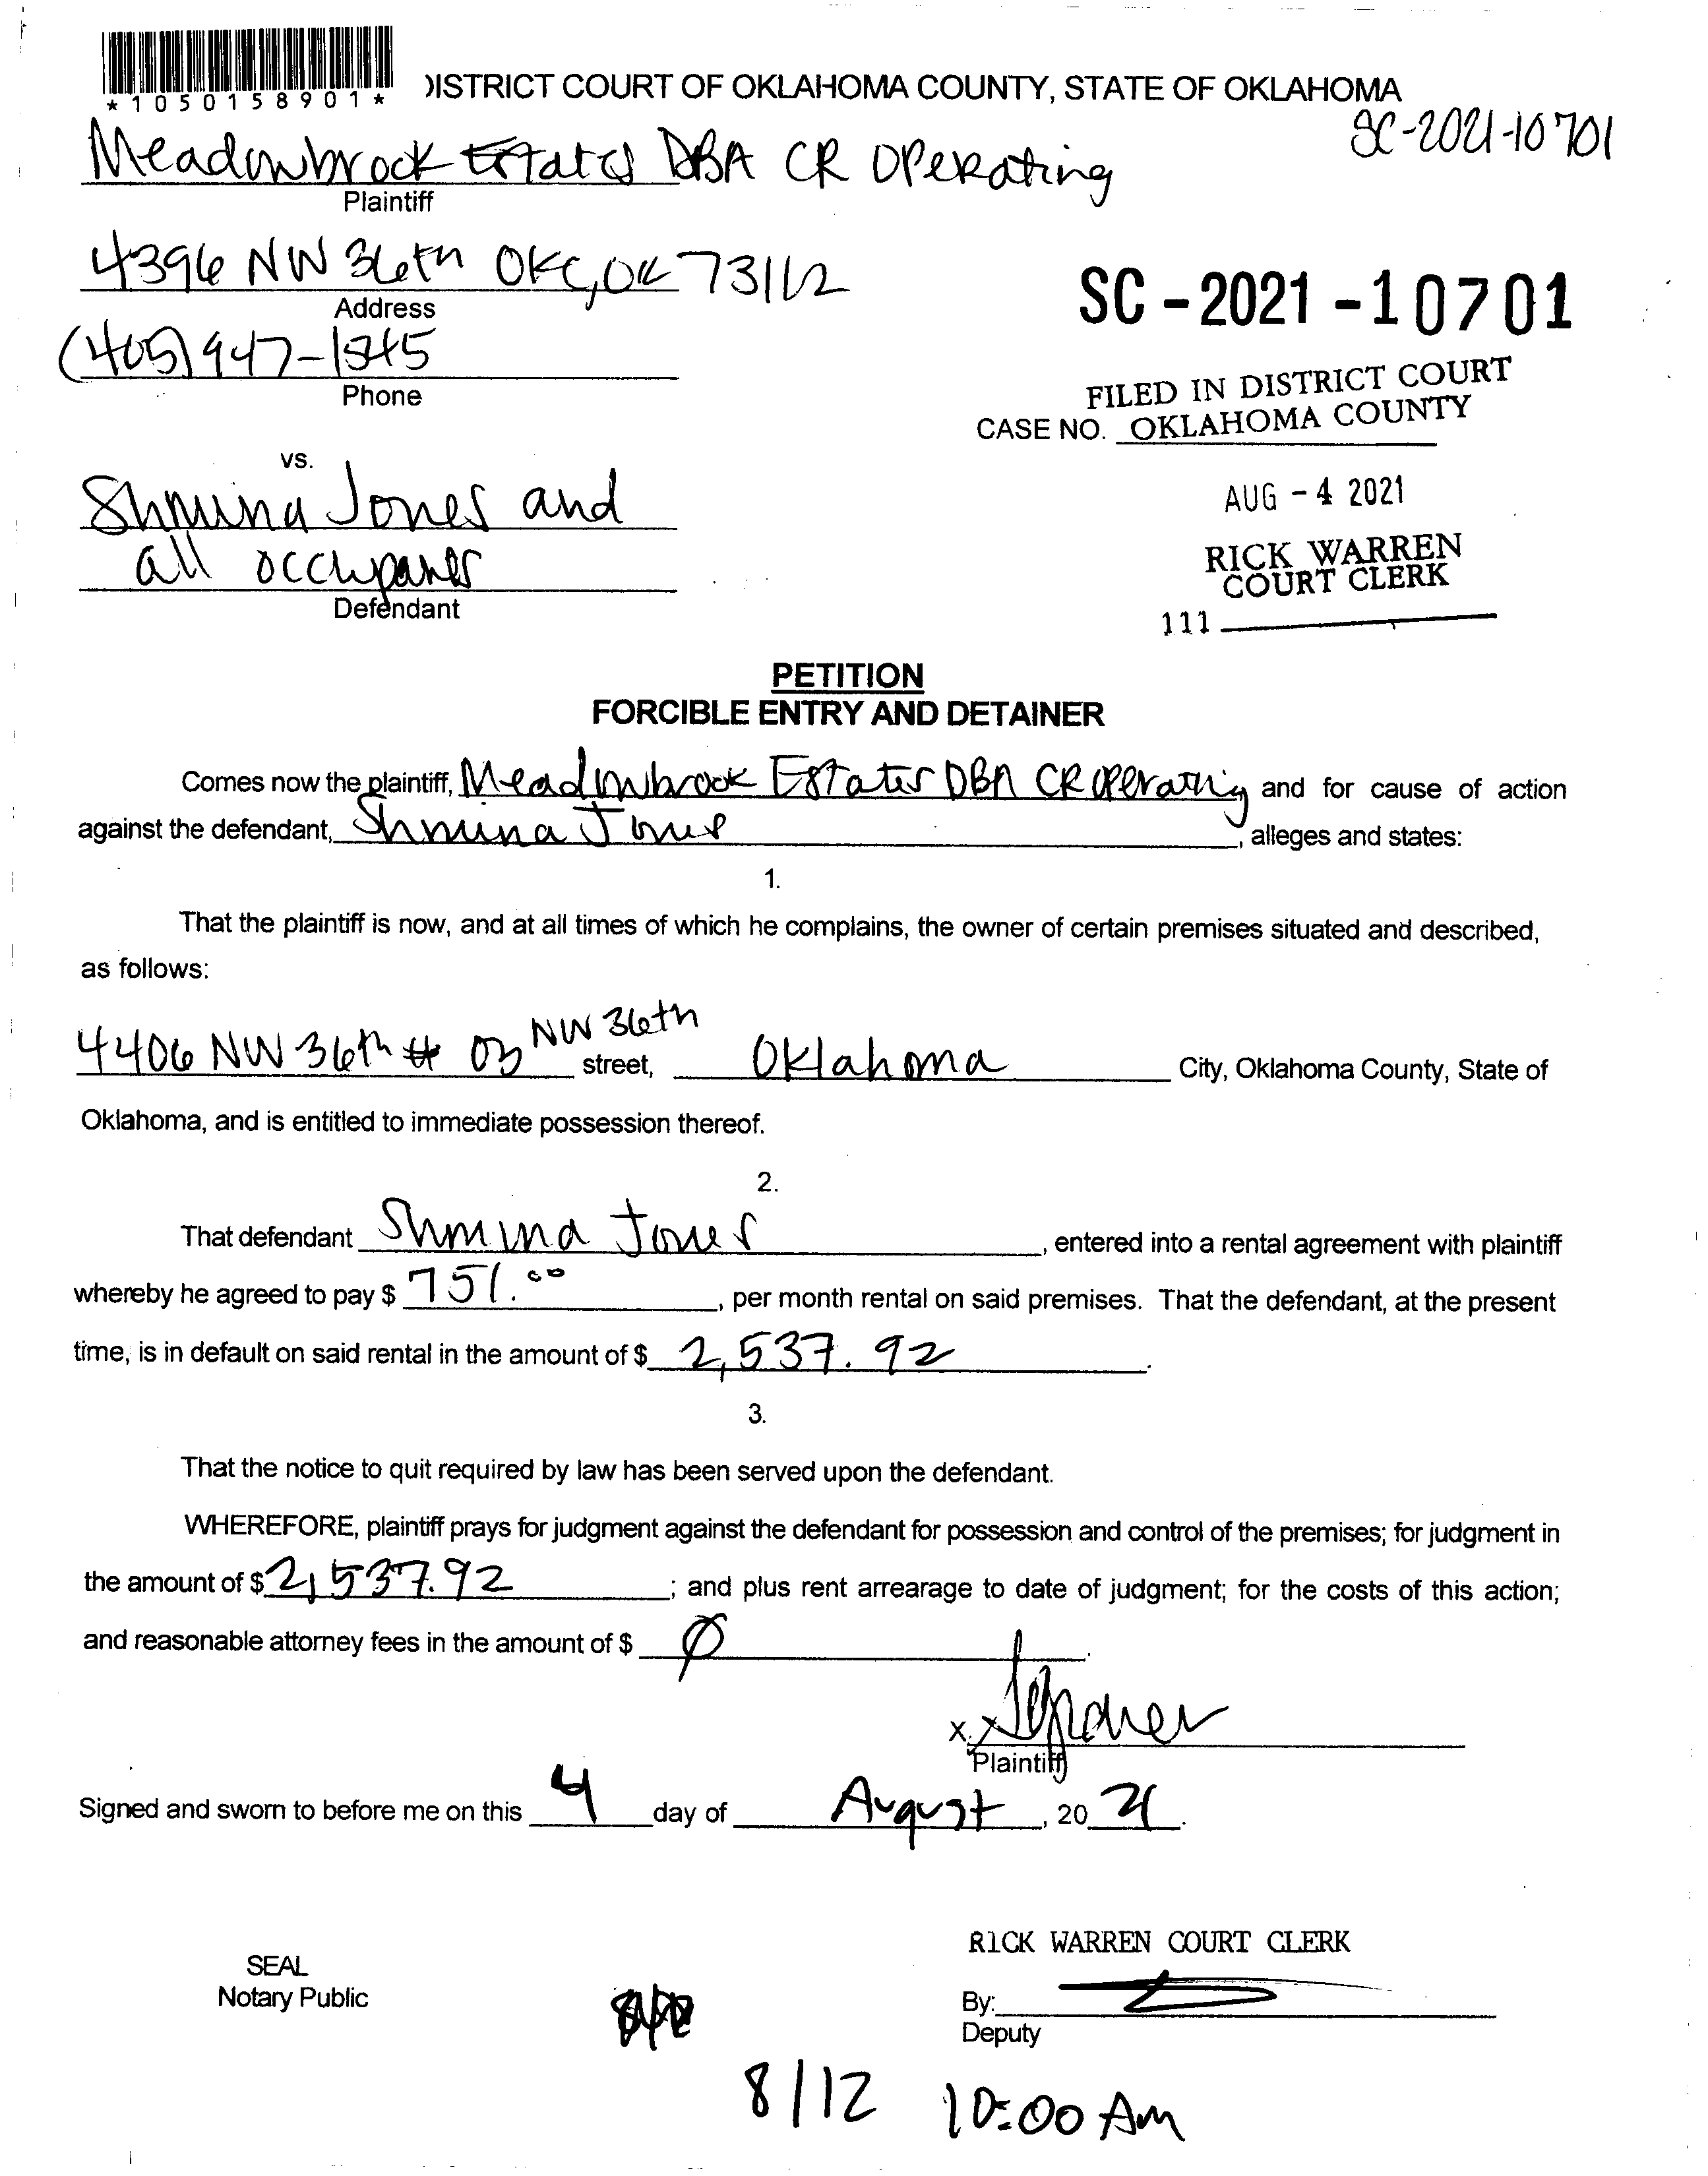 *1050158901*
DISTRICT COURT OF OKLAHOMA COUNTY, STATE OF OKLAHOMA
SC-2021-10701
Meadowbrook Estates DBA CR Operating
Plaintiff
4396 NW 36th OKC, OK 73112
Address
SC-2021-10701
(405) 947-1545
Phone
FILED IN DISTRICT COURT
CASE NO. OKLAHOMA COUNTY
vs.
AUG - 4 2021
Shmina Jones and
all occupants
Defendant
RICK WARREN
COURT CLERK
111
PETITION
FORCIBLE ENTRY AND DETAINER
Comes now the plaintiff, Meadowbrook Estates DBA CR Operating and for cause of action
against the defendant, Shmina Jones, alleges and states:
1.
That the plaintiff is now, and at all times of which he complains, the owner of certain premises situated and described,
as follows:
4406 NW 36th # 03 NW 36th street, Oklahoma City, Oklahoma County, State of
Oklahoma, and is entitled to immediate possession thereof.
2.
That defendant Shmina Jones, entered into a rental agreement with plaintiff
whereby he agreed to pay $ 751.00, per month rental on said premises. That the defendant, at the present
time, is in default on said rental in the amount of $ 2,537.92.
3.
That the notice to quit required by law has been served upon the defendant.
WHEREFORE, plaintiff prays for judgment against the defendant for possession and control of the premises; for judgment in
the amount of $ 2,537.92; and plus rent arrearage to date of judgment; for the costs of this action;
and reasonable attorney fees in the amount of $ Ø.
X
Plaintiff
Signed and sworn to before me on this 4 day of August, 20 21.
RICK WARREN COURT CLERK
SEAL
Notary Public
By:
Deputy
8/12 10:00 AM